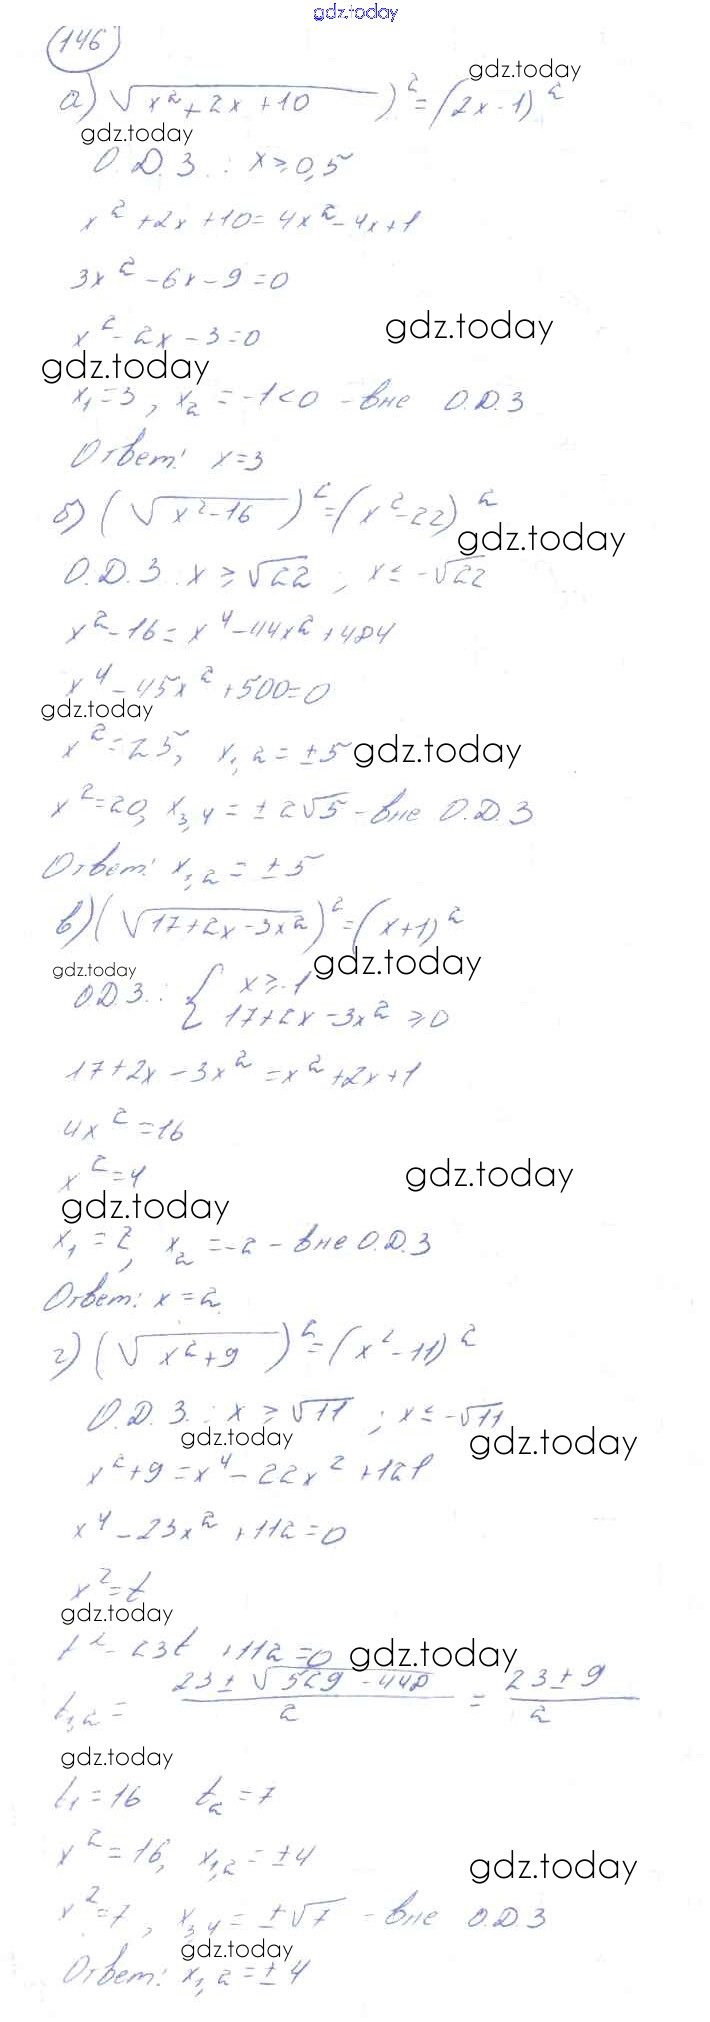 gdz.today
146
gdz.today
а) √(x²+2x+10) )² = (2x-1)²
gdz.today
О.Д.З.: x ≥ 0,5
x²+2x+10=4x²-4x+1
3x²-6x-9=0
x²-2x-3=0
gdz.today
gdz.today
x₁=3, x₂=-1<0 - вне О.Д.З
Ответ: x=3
б) (√(x²-16))²=(x²-22)²
gdz.today
О.Д.З: x ≥ √22 ; x ≤ -√22
x²-16=x⁴-44x²+484
x⁴-45x²+500=0
gdz.today
x²=25, x₁,₂=±5
gdz.today
x²=20, x₃,₄=±2√5 - вне О.Д.З
Ответ: x₁,₂=±5
в) (√(17+2x-3x²))²=(x+1)²
gdz.today
gdz.today
О.Д.З.: { x ≥ -1
17+2x-3x² ≥ 0
17+2x-3x²=x²+2x+1
4x²=16
x²=4
gdz.today
gdz.today
x₁=2, x₂=-2 - вне О.Д.З
Ответ: x=2.
г) (√(x²+9))²=(x²-11)²
О.Д.З.: x ≥ √11 ; x ≤ -√11
gdz.today
gdz.today
x²+9=x⁴-22x²+121
x⁴-23x²+112=0
x²=t
gdz.today
t²-23t+112=0
gdz.today
t₁,₂= (23±√(529-448))/2 = (23±9)/2
gdz.today
t₁=16 t₂=7
x²=16, x₁,₂=±4
gdz.today
x²=7, x₃,₄=±√7 - вне О.Д.З
gdz.today
Ответ: x₁,₂=±4